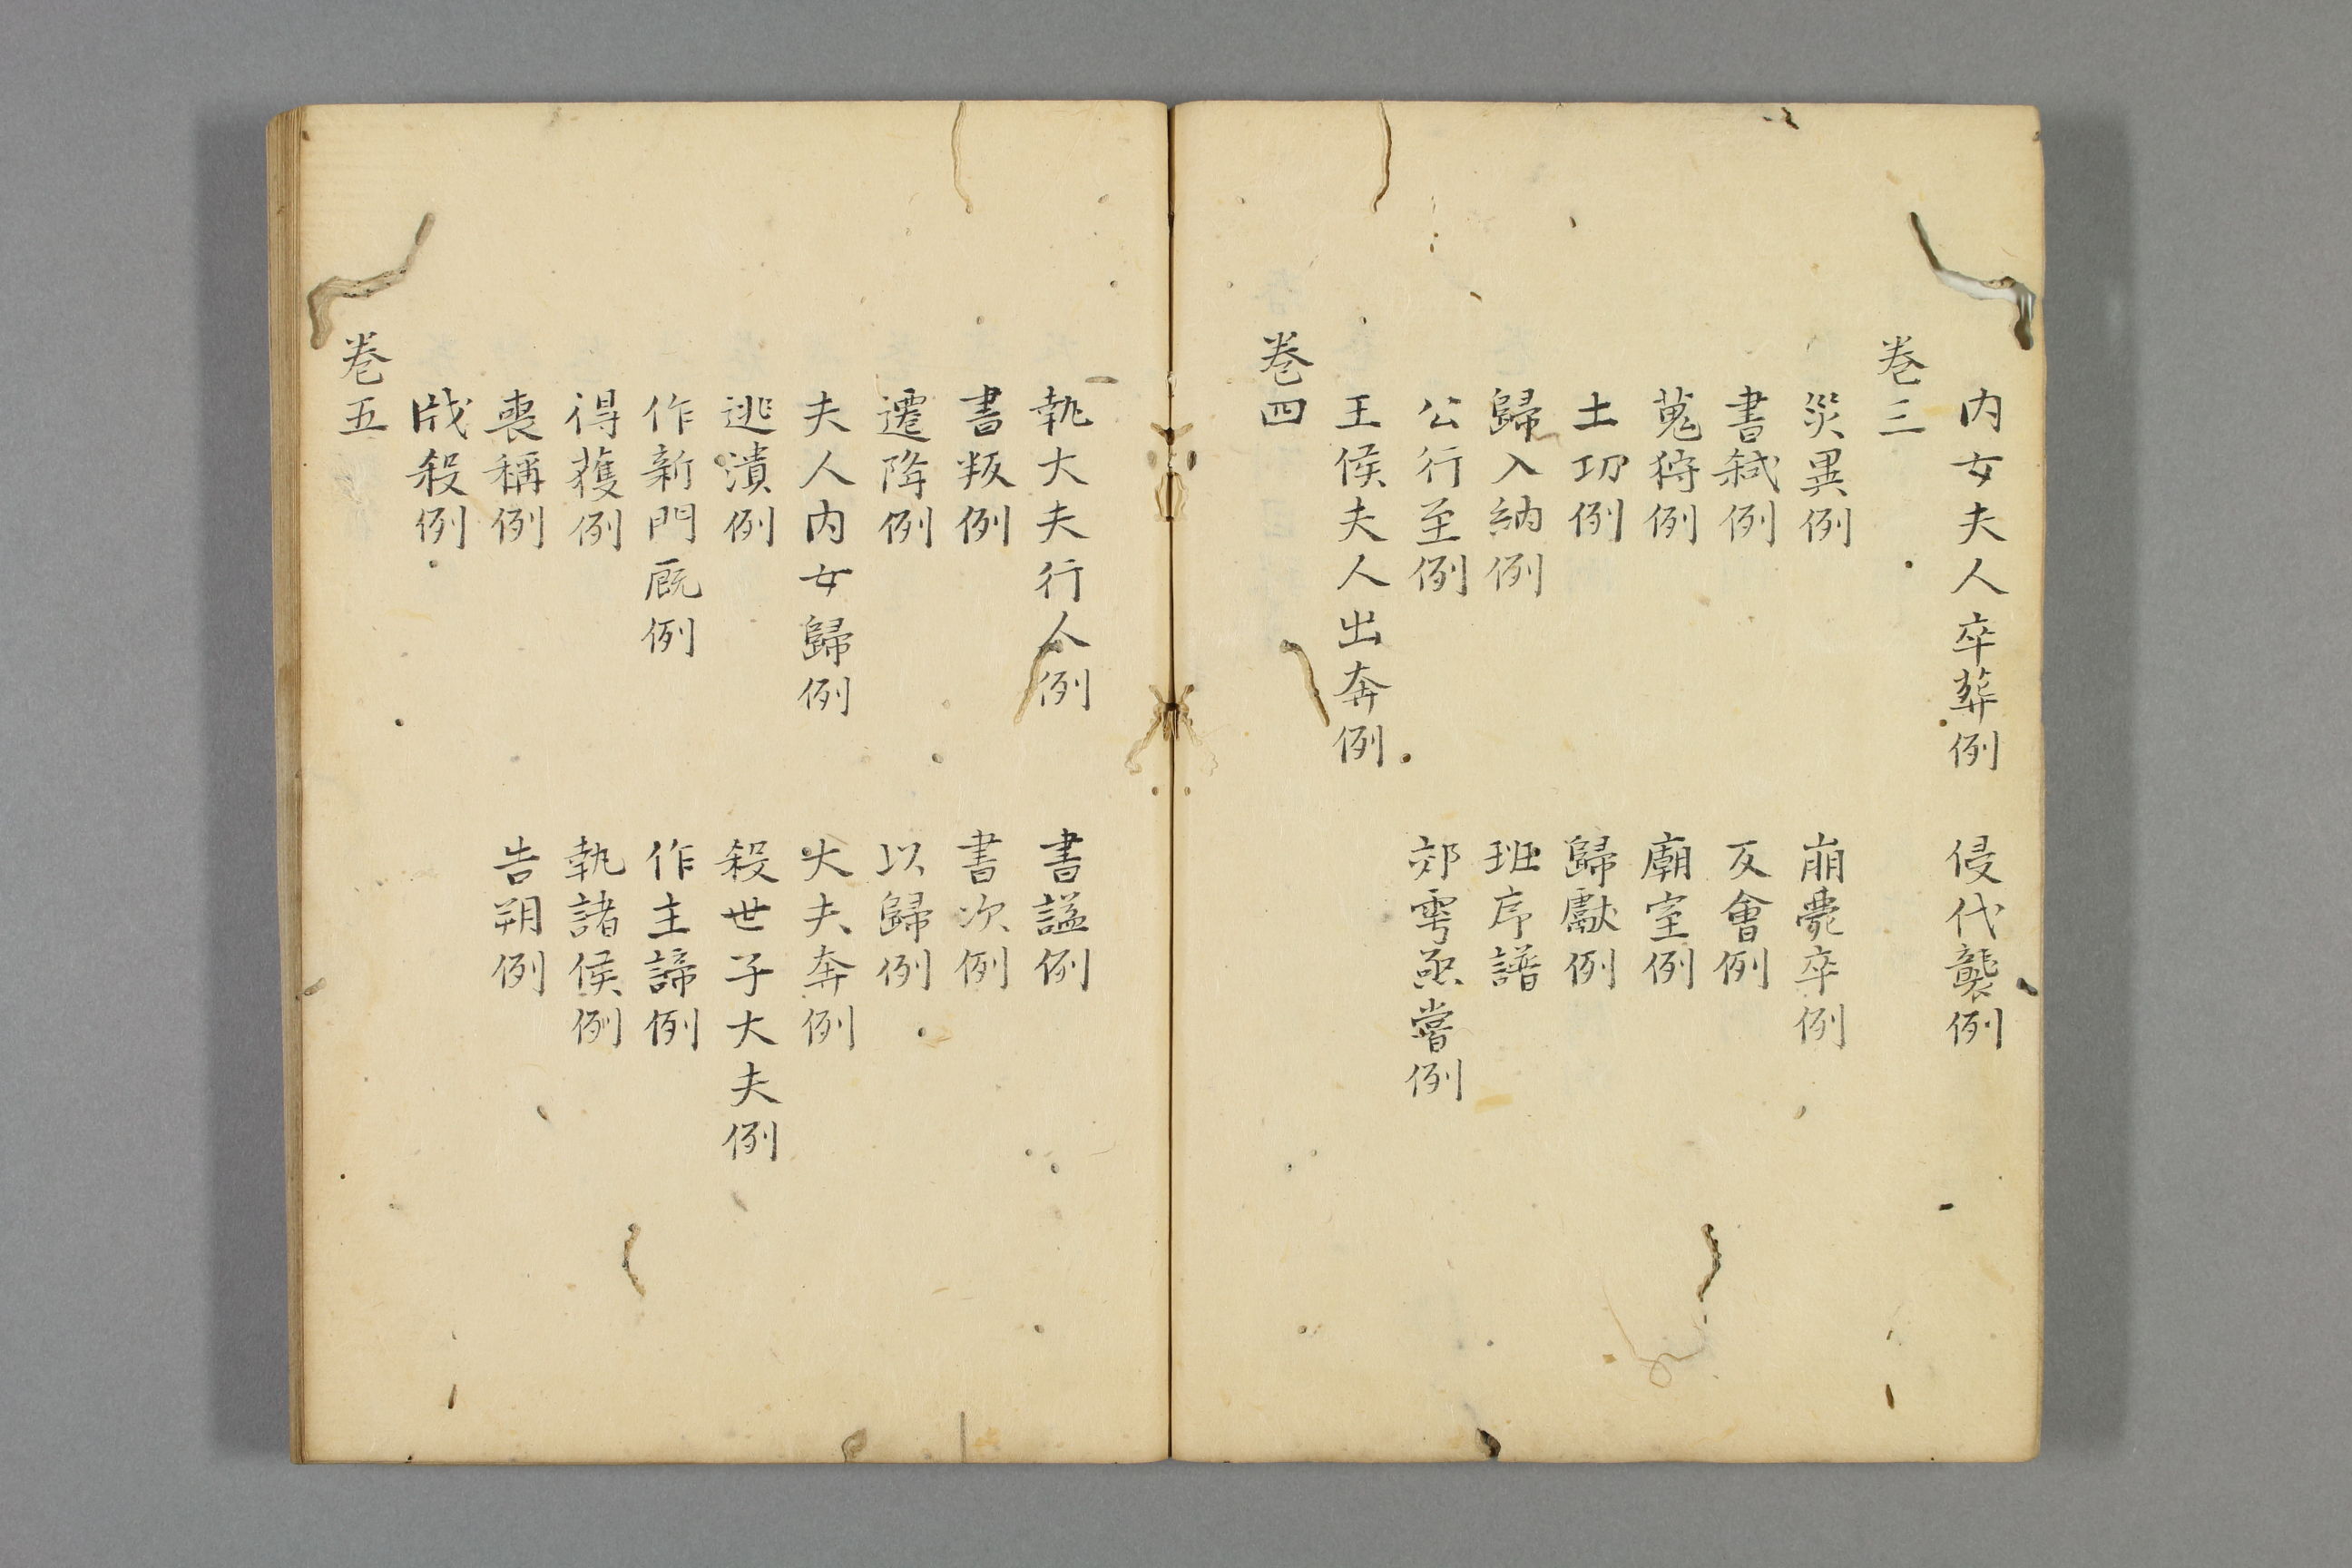 内女夫人卒葬例　侵伐襲例
巻三
災異例　崩薨卒例
書弑例　及會例
蒐狩例　廟室例
土功例　歸獻例
歸入納例　班序譜
公行至例　郊雩烝嘗例
王侯夫人出奔例
巻四
執大夫行人例　書諡例
書叛例　書次例
遷降例　以歸例
夫人内女歸例　大夫奔例
逃潰例　殺世子大夫例
作新門厩例　作主諦例
得獲例　執諸侯例
喪稱例　告朔例
戕殺例
巻五